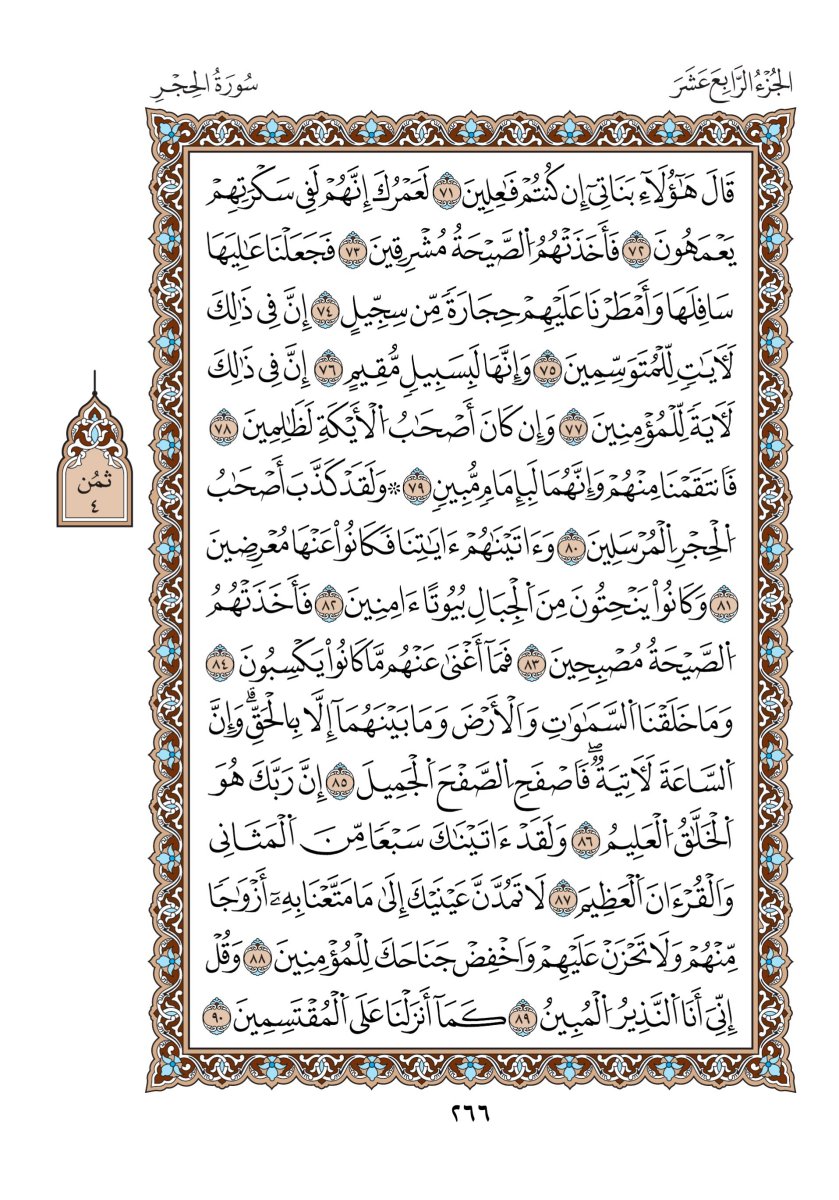 الجُزْءُ الرَّابِعَ عَشَرَ
سُورَةُ الحِجْرِ
قَالَ هَٰٓؤُلَآءِ بَنَاتِىٓ إِن كُنتُمْ فَٰعِلِينَ ٧١ لَعَمْرُكَ إِنَّهُمْ لَفِى سَكْرَتِهِمْ
يَعْمَهُونَ ٧٢ فَأَخَذَتْهُمُ اَ۬لصَّيْحَةُ مُشْرِقِينَ ٧٣ فَجَعَلْنَا عَٰلِيَهَا
سَافِلَهَا وَأَمْطَرْنَا عَلَيْهِمْ حِجَارَةً مِّن سِجِّيلٍ ٧٤ إِنَّ فِى ذَٰلِكَ
لَأٓيَٰتٍ لِّلْمُتَوَسِّمِينَ ٧٥ وَإِنَّهَا لَبِسَبِيلٍ مُّقِيمٍ ٧٦ إِنَّ فِى ذَٰلِكَ
لَأٓيَةً لِّلْمُؤْمِنِينَ ٧٧ وَإِن كَانَ أَصْحَٰبُ اُ۬لْأَيْكَةِ لَظَٰلِمِينَ ٧٨
فَانتَقَمْنَا مِنْهُمْ وَإِنَّهُمَا لَبِإِمَامٍ مُّبِينٍ ٧٩ ۞ وَلَقَدْ كَذَّبَ أَصْحَٰبُ
اُ۬لْحِجْرِ اِ۬لْمُرْسَلِينَ ٨٠ وَءَاتَيْنَٰهُمْ ءَايَٰتِنَا فَكَانُوا۟ عَنْهَا مُعْرِضِينَ
٨١ وَكَانُوا۟ يَنْحِتُونَ مِنَ اَ۬لْجِبَالِ بُيُوتًا ءَامِنِينَ ٨٢ فَأَخَذَتْهُمُ
اُ۬لصَّيْحَةُ مُصْبِحِينَ ٨٣ فَمَآ أَغْنَىٰ عَنْهُم مَّا كَانُوا۟ يَكْسِبُونَ ٨٤
وَمَا خَلَقْنَا اَ۬لسَّمَٰوَٰتِ وَالْأَرْضَ وَمَا بَيْنَهُمَآ إِلَّا بِالْحَقِّۗ وَإِنَّ
اَ۬لسَّاعَةَ لَأٓتِيَةٌۖ فَاصْفَحِ اِ۬لصَّفْحَ اَ۬لْجَمِيلَ ٨٥ إِنَّ رَبَّكَ هُوَ
اَ۬لْخَلَّٰقُ اُ۬لْعَلِيمُ ٨٦ وَلَقَدْ ءَاتَيْنَٰكَ سَبْعًا مِّنَ اَ۬لْمَثَانِى
وَالْقُرْءَانَ اَ۬لْعَظِيمَ ٨٧ لَا تَمُدَّنَّ عَيْنَيْكَ إِلَىٰ مَا مَتَّعْنَا بِهِۦٓ أَزْوَٰجًا
مِّنْهُمْ وَلَا تَحْزَنْ عَلَيْهِمْ وَاخْفِضْ جَنَاحَكَ لِلْمُؤْمِنِينَ ٨٨ وَقُلْ
إِنِّىٓ أَنَا اَ۬لنَّذِيرُ اُ۬لْمُبِينُ ٨٩ كَمَآ أَنزَلْنَا عَلَى اَ۬لْمُقْتَسِمِينَ ٩٠
ثُمُن
٤
٢٦٦